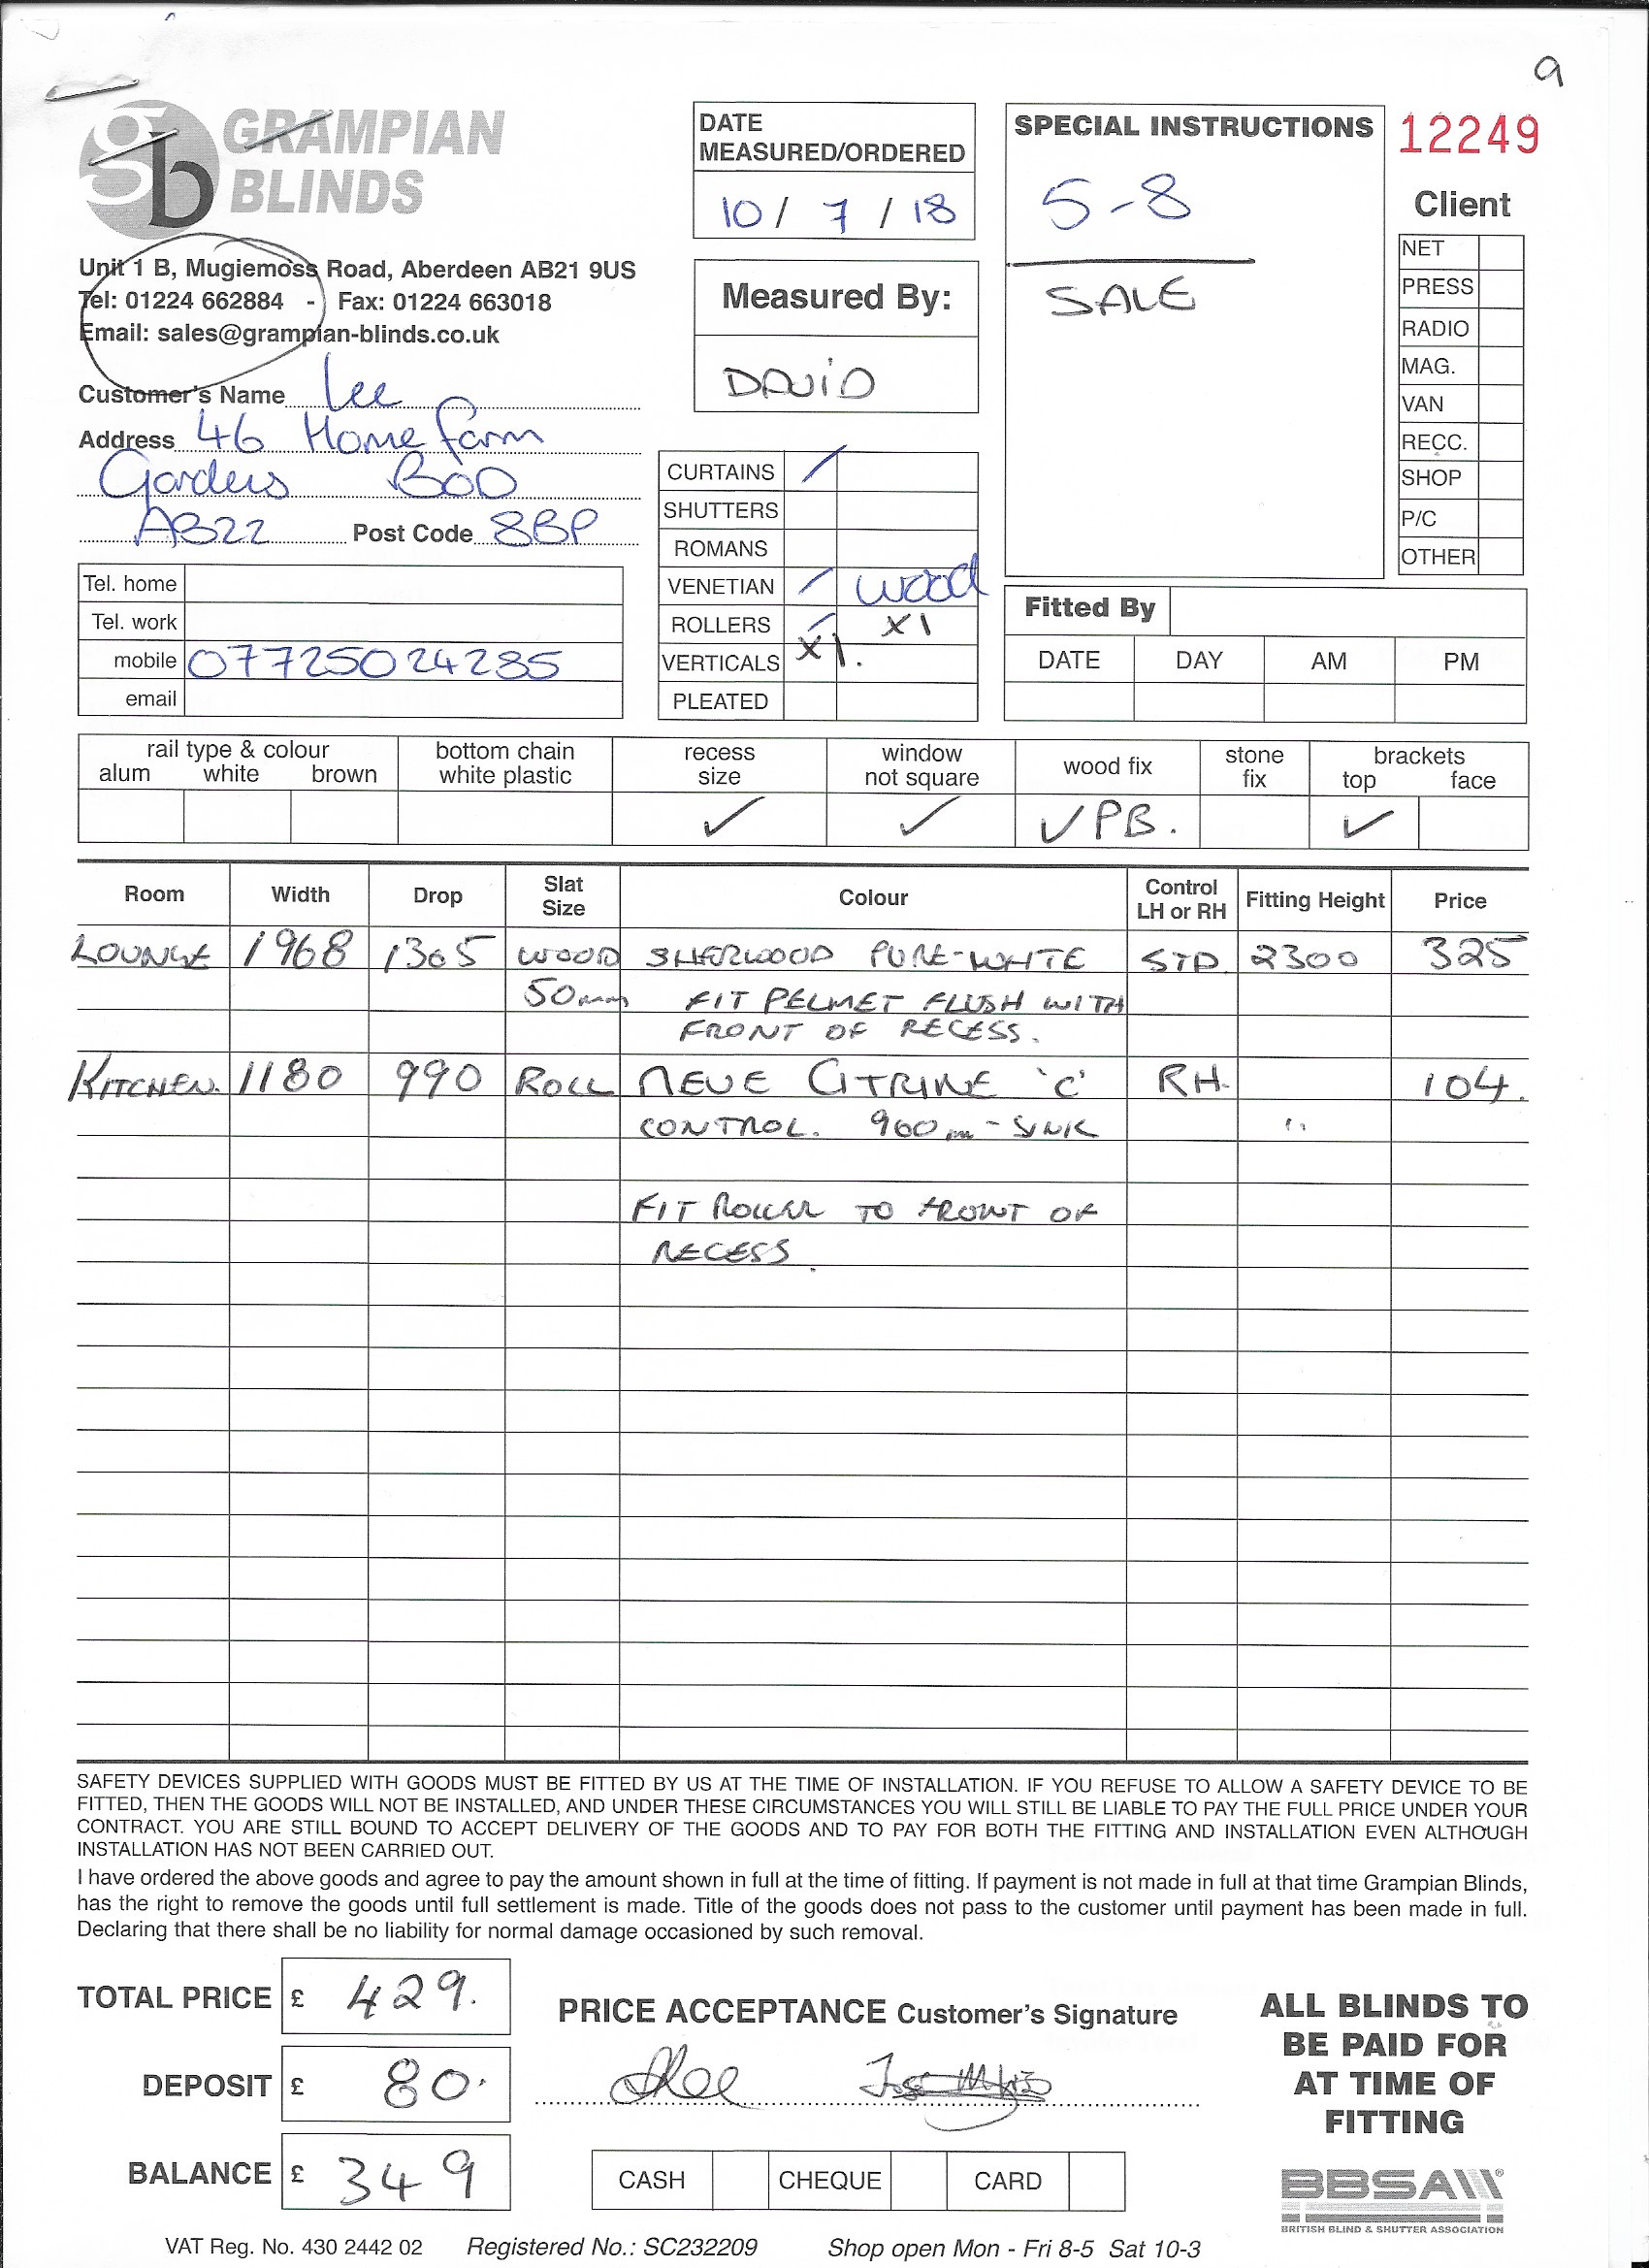 9
GRAMPIAN
BLINDS
Unit 1 B, Mugiemoss Road, Aberdeen AB21 9US
Tel: 01224 662884 - Fax: 01224 663018
Email: sales@grampian-blinds.co.uk
Customer's Name Lee
Address 46 Home farm
Gardens BOD
AB22 Post Code 8BP
Tel. home
Tel. work
mobile 07725024285
email
DATE
MEASURED/ORDERED
10 / 7 / 18
Measured By:
DAVID
CURTAINS /
SHUTTERS
ROMANS
VENETIAN / wood
ROLLERS / X1
VERTICALS X1.
PLEATED
SPECIAL INSTRUCTIONS
5-8
SALE
12249
Client
NET
PRESS
RADIO
MAG.
VAN
RECC.
SHOP
P/C
OTHER
Fitted By
DATE DAY AM PM
rail type & colour bottom chain recess window wood fix stone brackets
alum white brown white plastic size not square fix top face
✓ ✓ ✓ PB. ✓
Room Width Drop Slat Size Colour Control LH or RH Fitting Height Price
LOUNGE 1968 1305 WOOD SHERWOOD PURE-WHITE STD 2300 325
50mm FIT PELMET FLUSH WITH
FRONT OF RECESS.
KITCHEN. 1180 990 ROLL NEVE CITRINE 'C' RH. 104.
CONTROL. 960 - SINK
FIT ROLLER TO FRONT OF
RECESS
SAFETY DEVICES SUPPLIED WITH GOODS MUST BE FITTED BY US AT THE TIME OF INSTALLATION. IF YOU REFUSE TO ALLOW A SAFETY DEVICE TO BE
FITTED, THEN THE GOODS WILL NOT BE INSTALLED, AND UNDER THESE CIRCUMSTANCES YOU WILL STILL BE LIABLE TO PAY THE FULL PRICE UNDER YOUR
CONTRACT. YOU ARE STILL BOUND TO ACCEPT DELIVERY OF THE GOODS AND TO PAY FOR BOTH THE FITTING AND INSTALLATION EVEN ALTHOUGH
INSTALLATION HAS NOT BEEN CARRIED OUT.
I have ordered the above goods and agree to pay the amount shown in full at the time of fitting. If payment is not made in full at that time Grampian Blinds,
has the right to remove the goods until full settlement is made. Title of the goods does not pass to the customer until payment has been made in full.
Declaring that there shall be no liability for normal damage occasioned by such removal.
TOTAL PRICE £ 429.
DEPOSIT £ 80.
BALANCE £ 349
PRICE ACCEPTANCE Customer's Signature
CASH CHEQUE CARD
ALL BLINDS TO
BE PAID FOR
AT TIME OF
FITTING
BBSA
BRITISH BLIND & SHUTTER ASSOCIATION
VAT Reg. No. 430 2442 02 Registered No.: SC232209 Shop open Mon - Fri 8-5 Sat 10-3